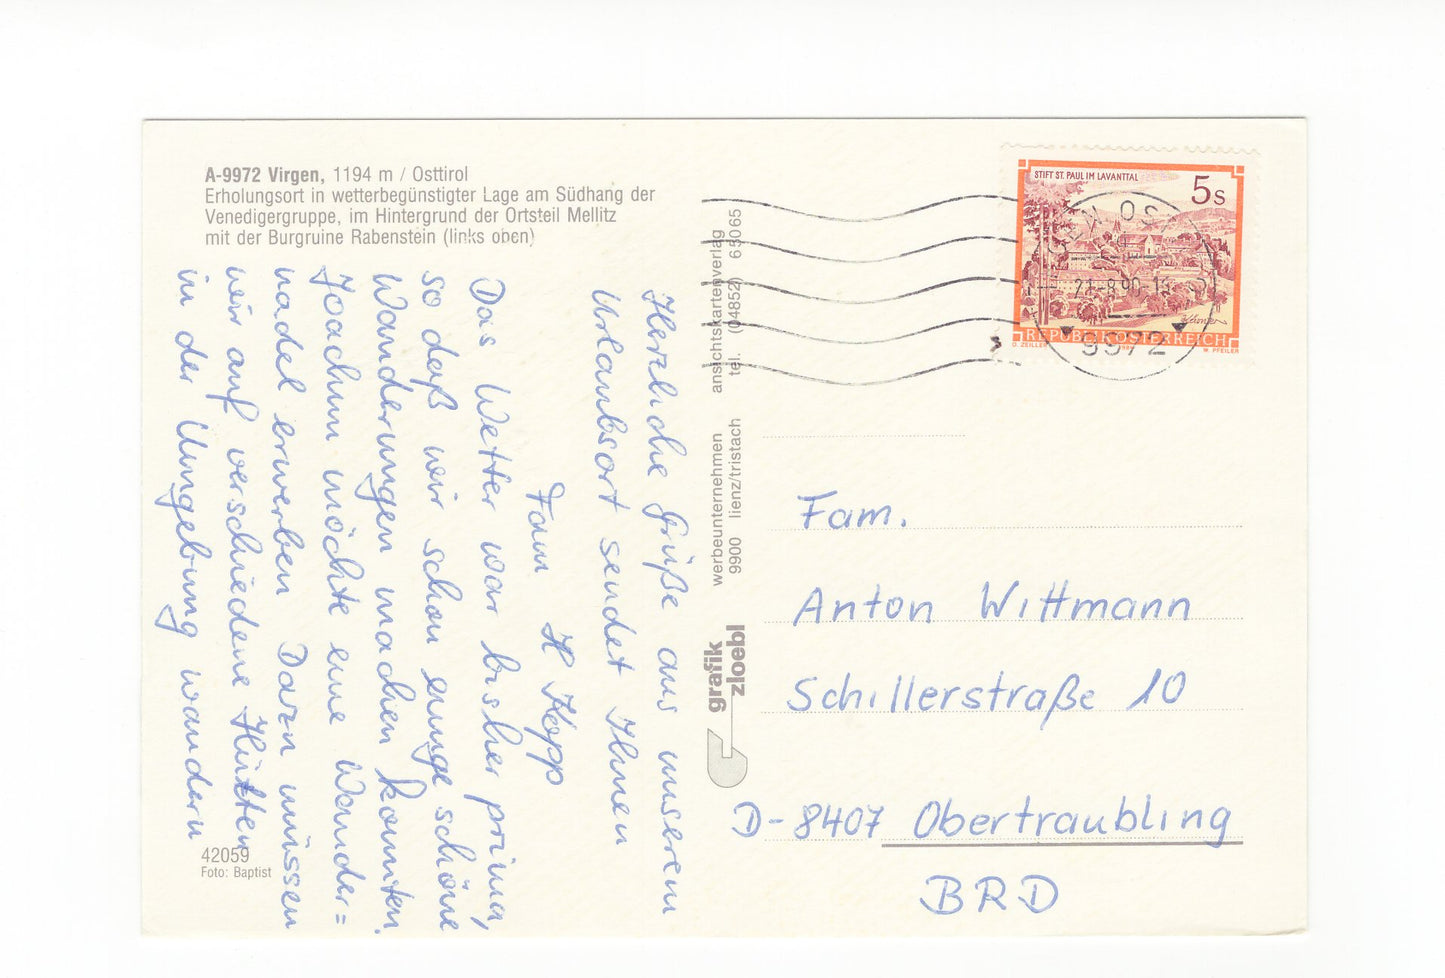 A-9972 Virgen, 1194 m / Osttirol
Erholungsort in wetterbegünstigter Lage am Südhang der
Venedigergruppe, im Hintergrund der Ortsteil Mellitz
mit der Burgruine Rabenstein (links oben)
Herzliche Grüße aus unserem
Urlaubsort sendet Ihnen
Fam H Kopp
Das Wetter war bisher prima,
so daß wir schon einige schöne
Wanderungen machen konnten.
Joachim möchte eine Wander=
nadel erwerben Dazu müssen
wir auf verschiedene Hütten
in der Umgebung wandern
42059
Foto: Baptist
werbeunternehmen ansichtskartenverlag
9900 lienz/tristach tel. (04852) 65065
grafik
zloebl
STIFT ST. PAUL IM LAVANTTAL
5s
REPUBLIK ÖSTERREICH
O. ZEILLER
W. PFEILER
9972
Fam.
Anton Wittmann
Schillerstraße 10
D-8407 Obertraubling
BRD